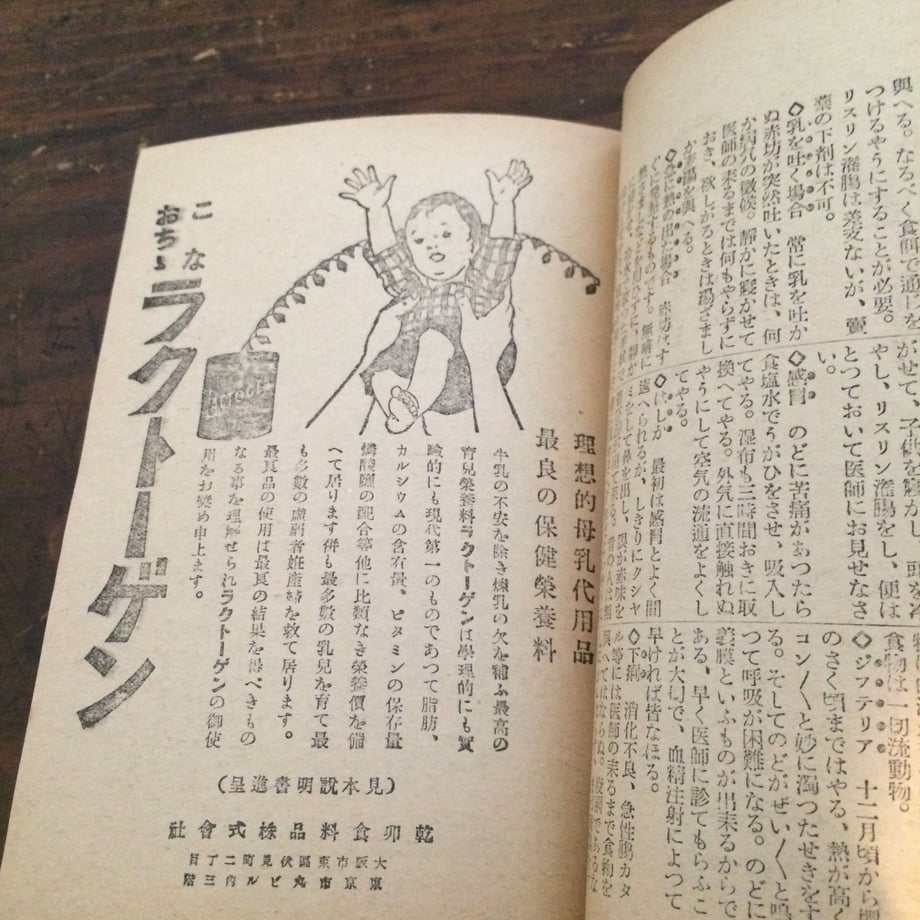 與へる。なるべく食師で通じを
つけるやうにすることが必要。
リスリン灌腸は差支ないが、賣
藥の下剤は不可。
◇乳を吐く場合　常に乳を吐か
ぬ赤坊が突然吐いたときは、何
か病気の徴候。靜かに寝かせて
医師の来るまでは何もやらずに
おき、欲しがるときは湯ざまし
か茶湯を與へる。
◇急に熱の出た場合　赤坊はす
ぐに發熱するものです。無暗に
がせて、子供を寝かし、頭を冷
やし、リスリン灌腸をし、便は
とつておいて医師にお見せなさ
い。
◇感冒　のどに苦痛があつたら
食塩水でうがひをさせ、吸入し
てやる。湿布も三時間おきに取
換へてやる。外気に直接触れぬ
やうにして空気の流通をよくし
てやる。
◇はしか　最初は感冒とよく間
違へられるが、しきりにクシャ
ミをして鼻を出し、眼が赤味を
食物は一切流動物。
◇ジフテリア　十二月頃から櫻
のさく頃まではやる、熱が高く
コン〳〵と妙に濁つたせきをす
る。そしてのどがぜい〳〵と鳴
つて呼吸が困難になる。のどに
義膜といふものが出来るからで
ある、早く医師に診てもらふこ
とが大切で、血精注射によつて
早ければ皆なほる。
◇下痢　消化不良、急性腸カタ
ル等には医師の来るまで食物を
與へてはならぬ。
理想的母乳代用品
最良の保健榮養料
牛乳の不安を除き煉乳の欠を補ふ最高の
育兒榮養料ラクトーゲンは學理的にも實
驗的にも現代第一のものであつて脂肪、
カルシウムの含有量、ビタミンの保存量
燐酸鹽の配合等他に比類なき榮養價を備
へて居ります併も最多數の乳兒を育て最
も多數の虚弱者姙産婦を救て居ります。
最良品の使用は最良の結果を得べきもの
なる事を理解せられラクトーゲンの御使
用をお奬め申上ます。
こな
おちゝ
ラクトーゲン
（見本說明書進呈）
乾卯食料品株式會社
大阪市東區伏見町二丁目
東京市丸ビル内三階